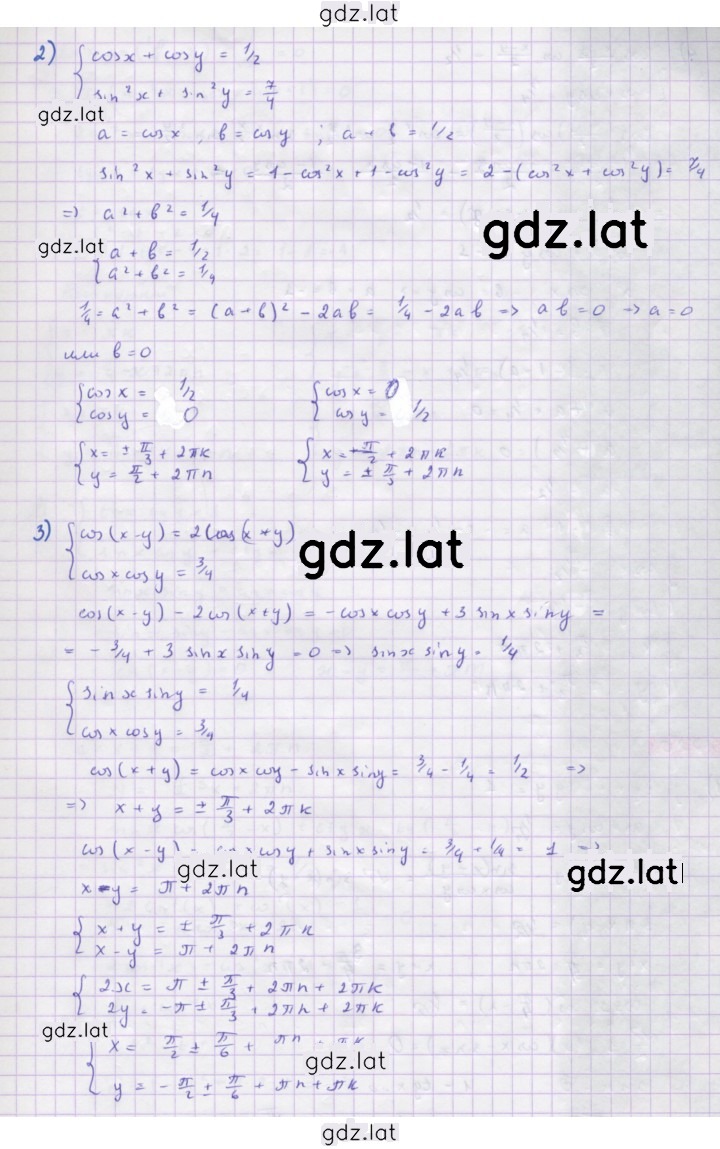 gdz.lat
2) { cos x + cos y = 1/2
sin²x + sin²y = 7/4
gdz.lat
a = cos x , b = cos y ; a + b = 1/2
sin²x + sin²y = 1 - cos²x + 1 - cos²y = 2 - (cos²x + cos²y) = 7/4
=> a² + b² = 1/4
gdz.lat
gdz.lat
{ a + b = 1/2
a² + b² = 1/4
1/4 = a² + b² = (a + b)² - 2ab = 1/4 - 2ab => ab = 0 => a = 0
или b = 0
{ cos x = 1/2 { cos x = 0
cos y = 0 cos y = 1/2
{ x = ± π/3 + 2πk { x = π/2 + 2πk
y = π/2 + 2πn y = ± π/3 + 2πn
3) { cos(x - y) = 2cos(x + y)
gdz.lat
cos x cos y = 3/4
cos(x - y) - 2cos(x + y) = -cos x cos y + 3 sin x sin y =
= - 3/4 + 3 sin x sin y = 0 => sin x sin y = 1/4
{ sin x sin y = 1/4
cos x cos y = 3/4
cos(x + y) = cos x cos y - sin x sin y = 3/4 - 1/4 = 1/2 =>
=> x + y = ± π/3 + 2πk
cos(x - y) cos y + sin x sin y = 3/4 + 1/4 = 1 =>
gdz.lat
gdz.lat
x - y = π + 2πn
{ x + y = ± π/3 + 2πk
x - y = π + 2πn
{ 2x = π ± π/3 + 2πn + 2πk
2y = -π ± π/3 + 2πn + 2πk
gdz.lat
{ x = π/2 ± π/6 + πn + πk
gdz.lat
y = - π/2 ± π/6 + πn + πk
gdz.lat